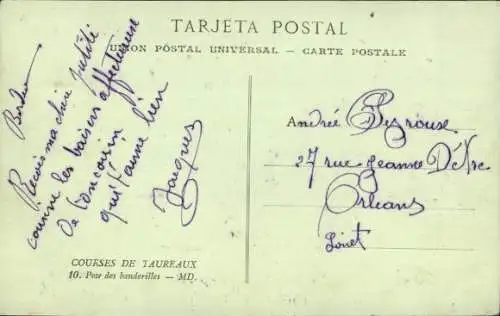 TARJETA POSTAL
UNION POSTAL UNIVERSAL — CARTE POSTALE
Bordeaux
Reçois ma chère petite
cousine les baisers affectueux
de ton cousin
qui t'aime bien
Jacques
Andrée
27 rue Jeanne D'Arc
Orléans
Loiret
COURSES DE TAUREAUX
10. Pose des banderilles — MD.